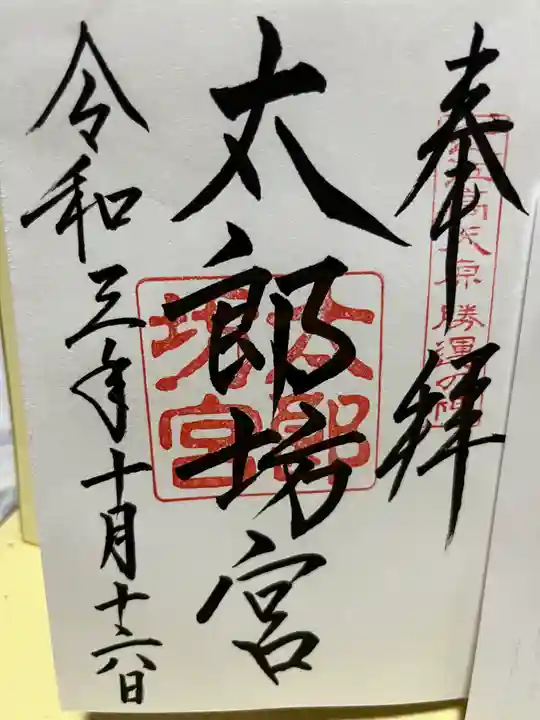 奉拝
近江高天原 勝運の神
太郎坊宮
太郎坊宮
令和三年十月十六日